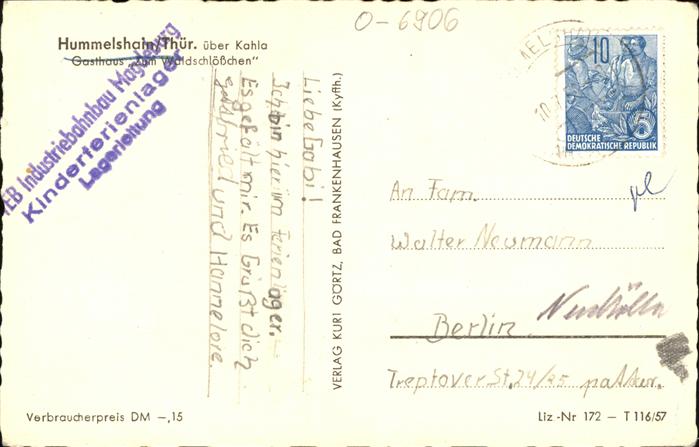 O-6906
Hummelshain/Thür. über Kahla
Gasthaus „Zum Waldschlößchen"
VEB Industriebahnbau Magdeburg
Kinderferienlager
Lagerleitung
Liebe Gabi!
Ich bin hier im Ferienlager.
Es gefält mir. Es Grüßt dich
und Hannelore.
VERLAG KURT GÖRTZ, BAD FRANKENHAUSEN (Kyffh.)
10
5
DEUTSCHE
DEMOKRATISCHE REPUBLIK
An Fam.
Walter Neumann
Neukölln
Berlin
Treptover St. 24/25 patter.
Verbraucherpreis DM –,15
Liz.-Nr 172 – T 116/57